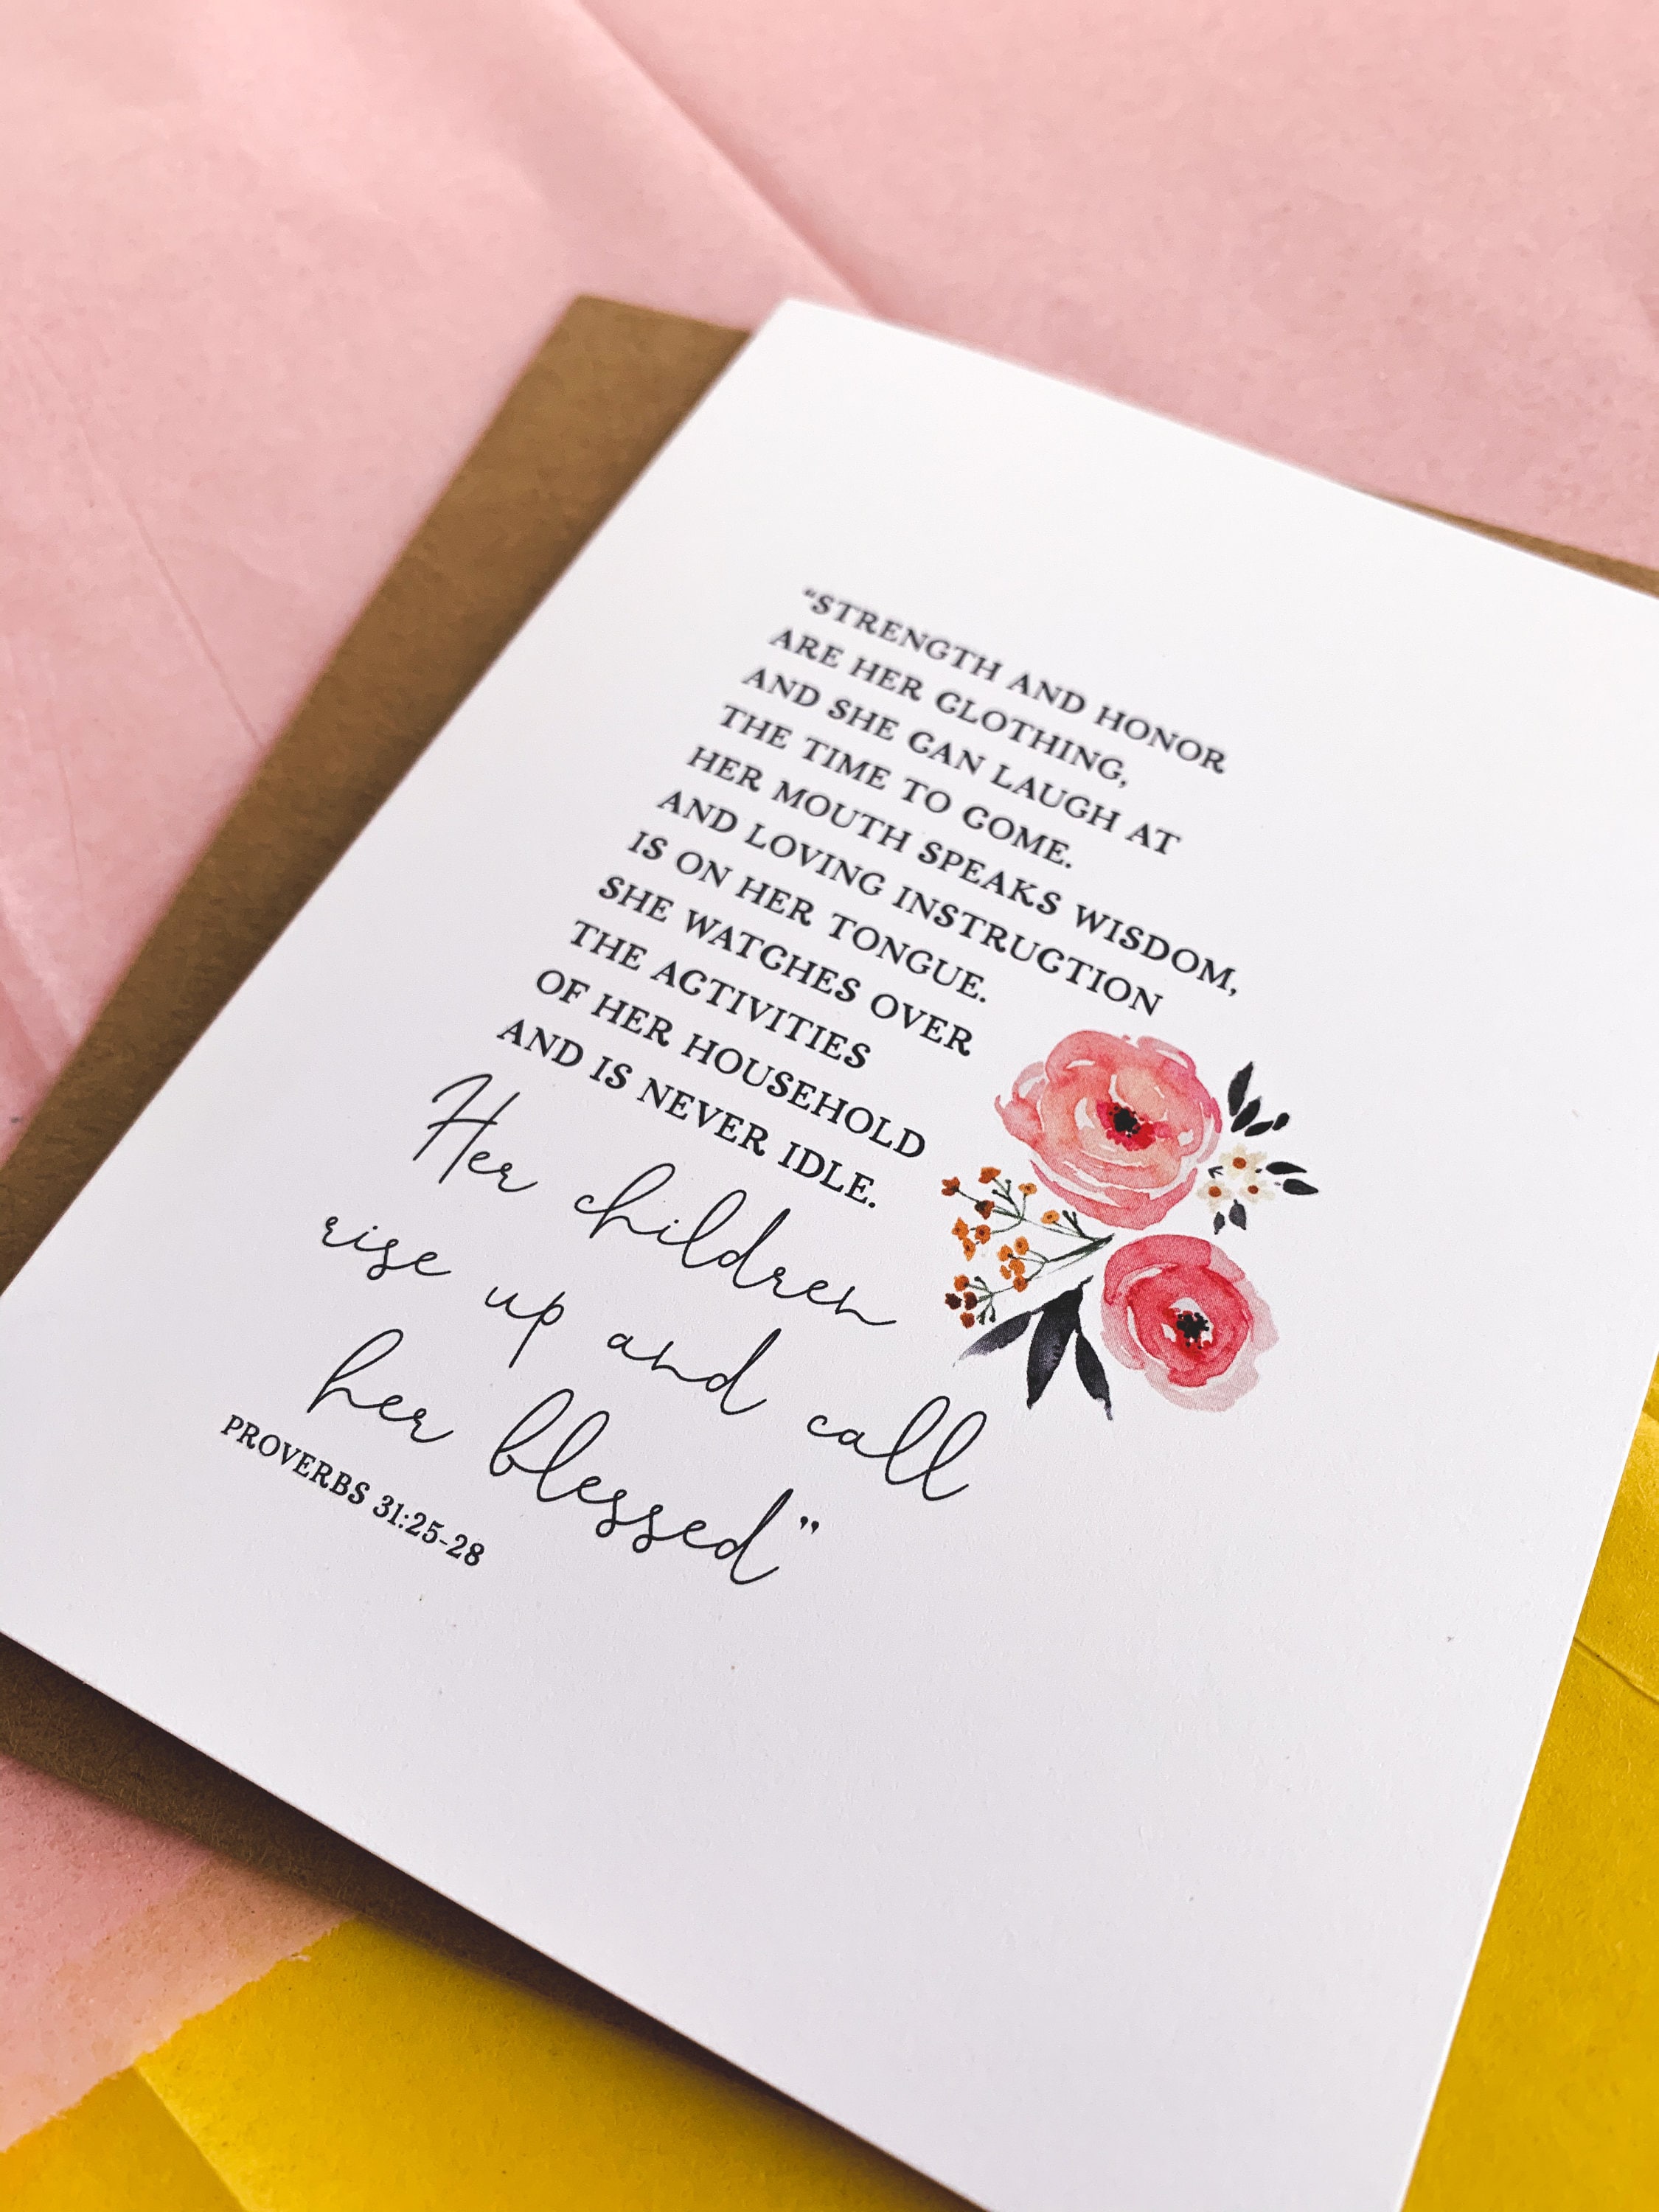 “STRENGTH AND HONOR
ARE HER CLOTHING,
AND SHE CAN LAUGH AT
THE TIME TO COME.
HER MOUTH SPEAKS WISDOM,
AND LOVING INSTRUCTION
IS ON HER TONGUE.
SHE WATCHES OVER
THE ACTIVITIES
OF HER HOUSEHOLD
AND IS NEVER IDLE.
Her children
rise up and call
her blessed”
PROVERBS 31:25-28